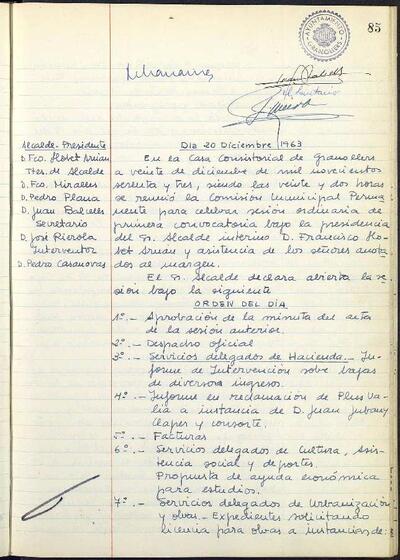 85
AYUNTAMIENTO
GRANOLLERS
El Secretario
Alcalde-Presidente
D. Fco. Llobet Arnán
Ttes. de Alcalde
D. Fco. Miralles
D. Pedro Plana
D. Juan
Secretario
D. José Rierola
Interventor
D. Pedro Casanovas
Dia 20 Diciembre 1963
En la Casa Consistorial de Granollers
a veinte de diciembre de mil novecientos
sesenta y tres, siendo las veinte y dos horas
se reunió la Comisión Municipal Perma
nente para celebrar sesión ordinaria de
primera convocatoria bajo la presidencia
del Sr. Alcalde interino D. Francisco Llo-
bet Arnán y asistencia de los señores anota
dos al margen.
El Sr. Alcalde declara abierta la se
sión bajo la siguiente
ORDEN DEL DIA
1º.- Aprobación de la minuta del acta
de la sesión anterior.
2º.- Despacho oficial
3º.- Servicios delegados de Hacienda.- In-
forme de Intervención sobre bajas
de diversos ingresos.
4º.- Informe en reclamación de Plus Va-
lia a instancia de D. Juan Jubany
Claper y consorte.
5º.- Facturas
6º.- Servicios delegados de Cultura, Asis-
tencia social y deportes.
Propuesta de ayuda económica
para estudios.
7º.- Servicios delegados de Urbanización
y obras.- Expedientes solicitando
licencia para obras a instancias de: